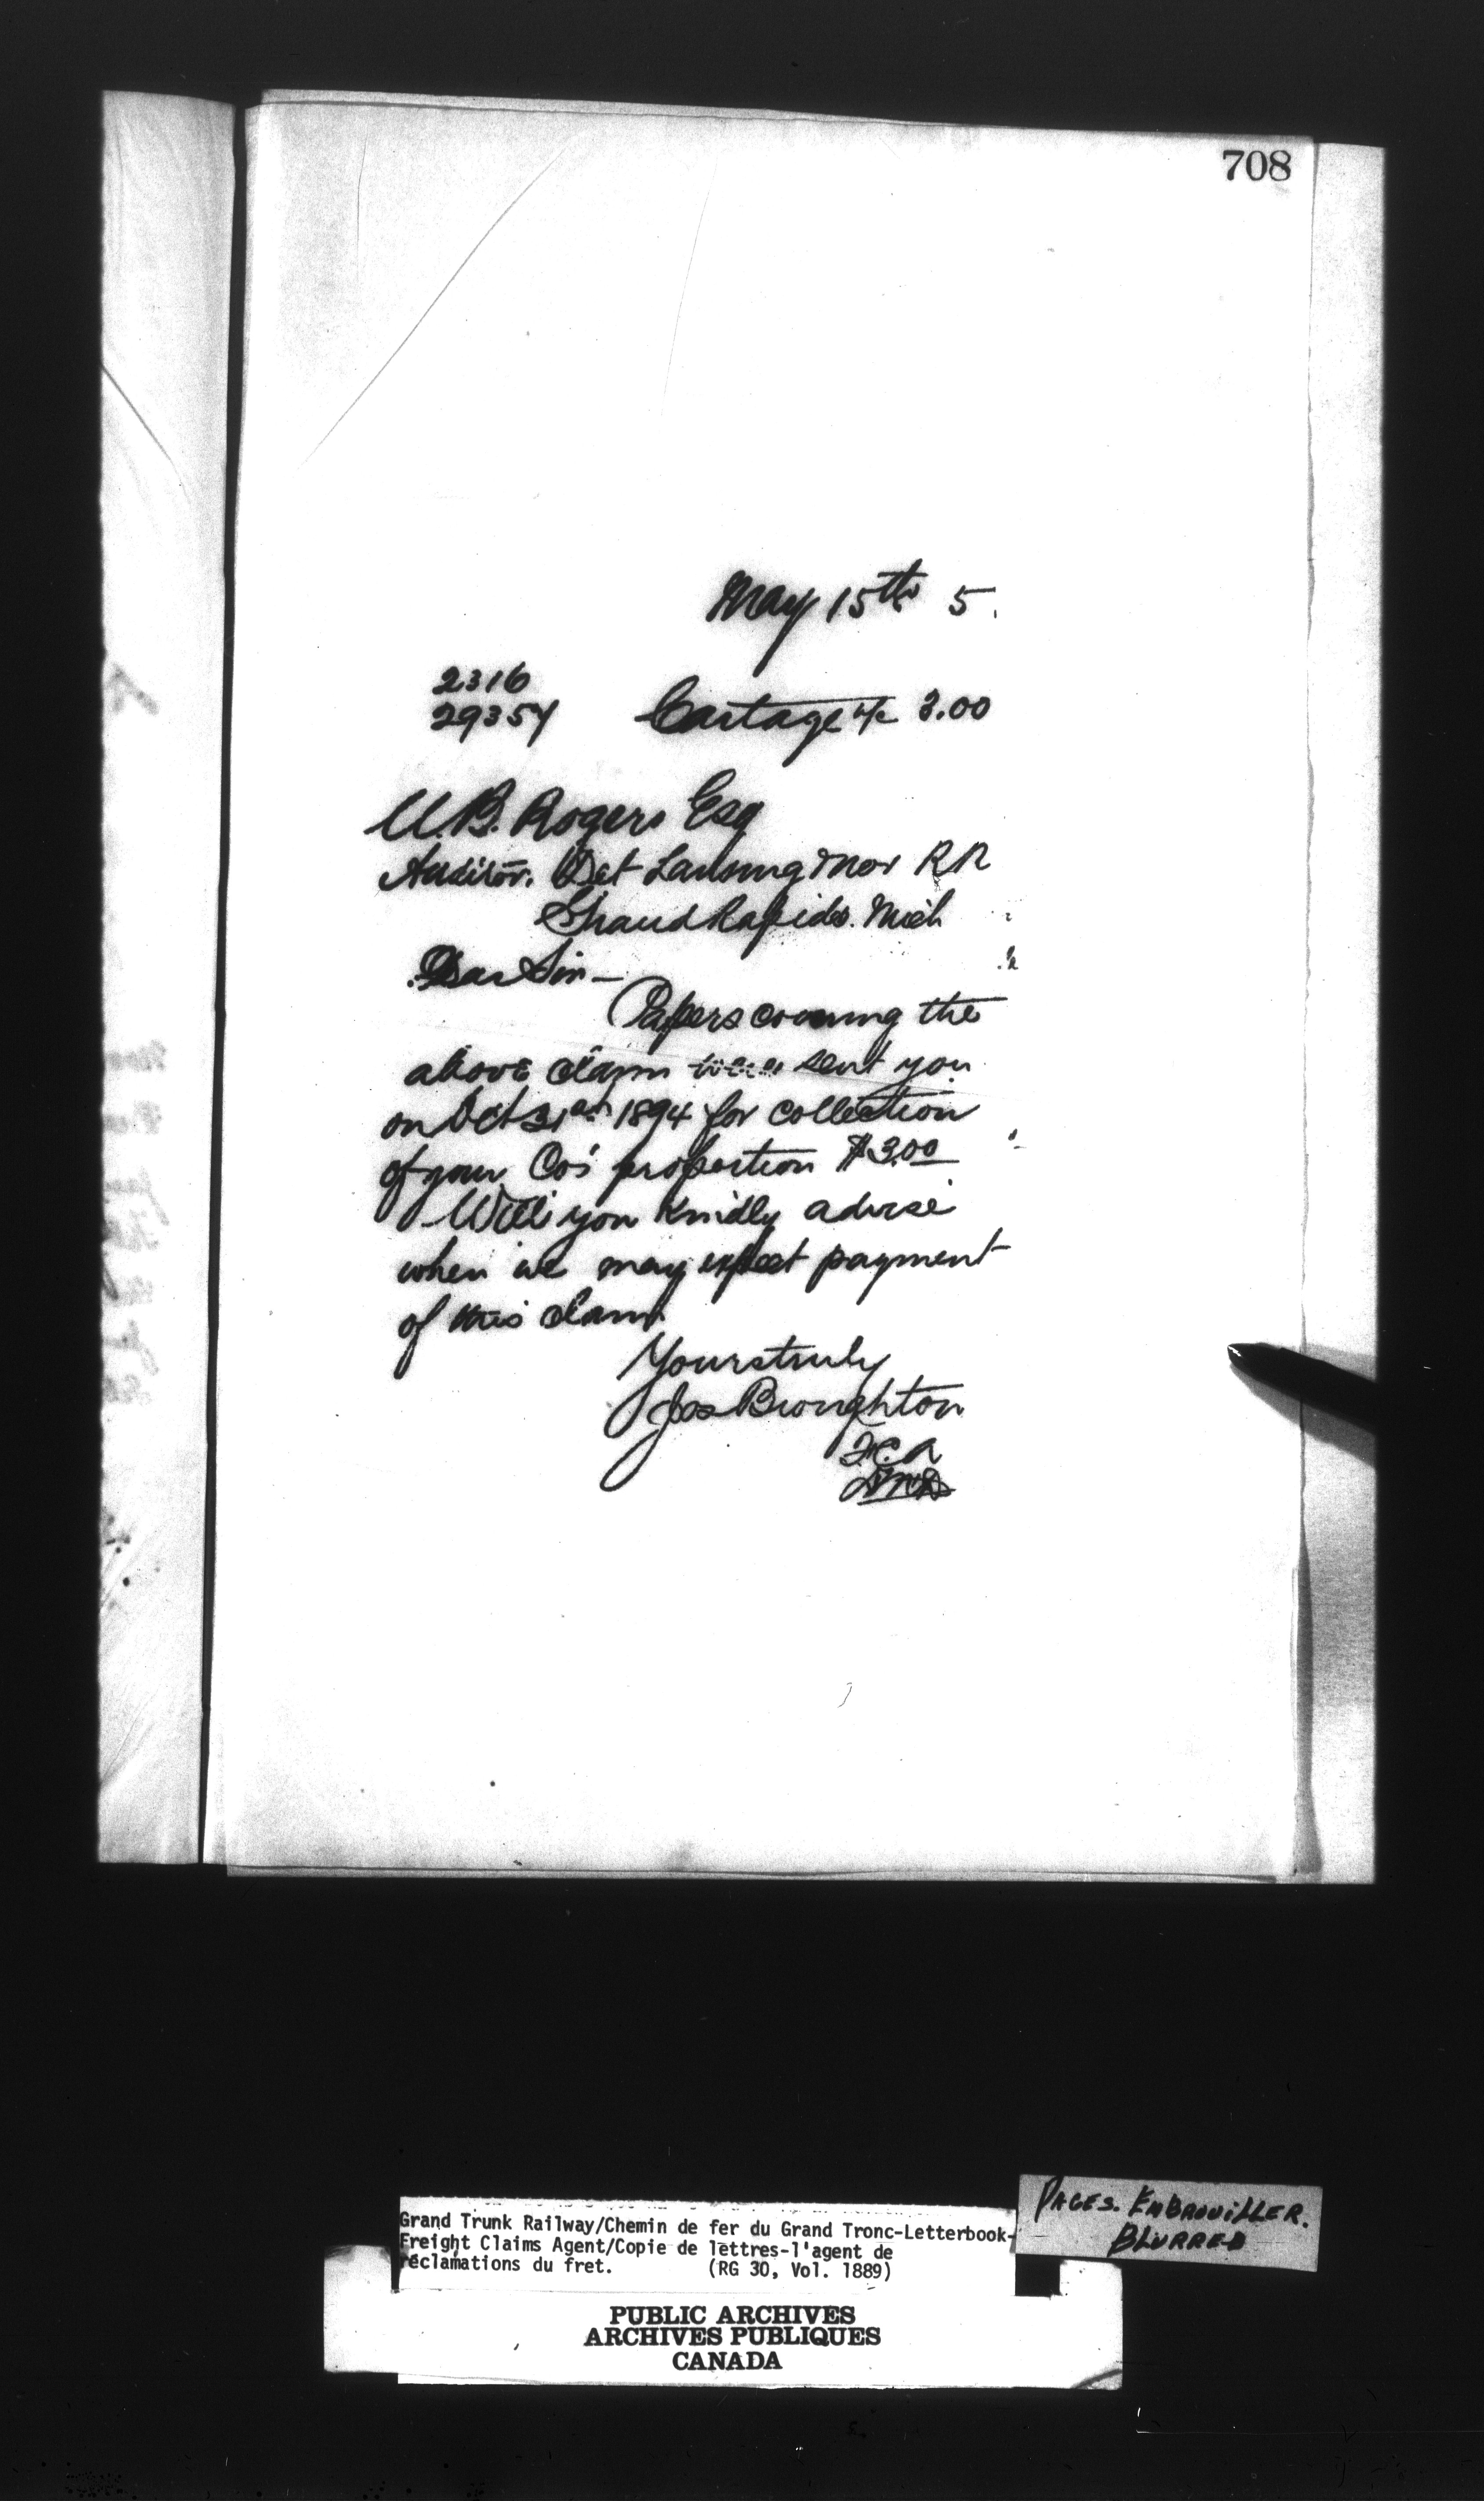 708
May 15th 5.
2316
29354 Cartage a/c 3.00
U.B. Rogers Esq
Auditor. Det Lansing & Nor RR
Grand Rapids. Mich
Dear Sir—
Papers covering the
above claim were sent you
on Oct 31st 1894 for collection
of your Co's proportion $3.00
Will you kindly advise
when we may expect payment
of this claim
Yours truly
Jos Broughton
F.C.A
Grand Trunk Railway/Chemin de fer du Grand Tronc-Letterbook-
Freight Claims Agent/Copie de lettres-l'agent de
réclamations du fret. (RG 30, Vol. 1889)
PAGES. EMBROUILLER.
BLURRED
PUBLIC ARCHIVES
ARCHIVES PUBLIQUES
CANADA